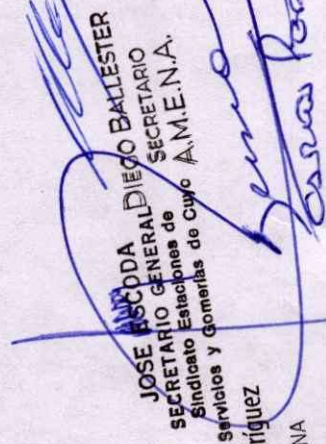 JOSE ESCODA
SECRETARIO GENERAL
Sindicato Estaciones de
Servicios y Gomerías de Cuyo
DIEGO BALLESTER
SECRETARIO
A.M.E.N.A.
ríguez
NA